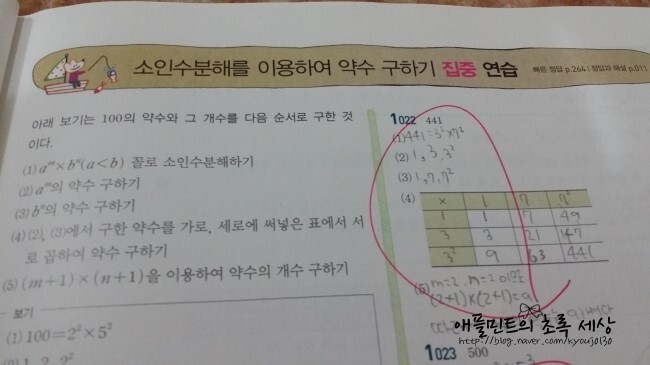 소인수분해를 이용하여 약수 구하기 집중 연습
빠른 정답 p.264 | 정답과 해설 p.011
아래 보기는 100의 약수와 그 개수를 다음 순서로 구한 것
이다.
(1) aᵐ×bⁿ(a<b) 꼴로 소인수분해하기
(2) aᵐ의 약수 구하기
(3) bⁿ의 약수 구하기
(4) (2), (3)에서 구한 약수를 가로, 세로에 써넣은 표에서 서
로 곱하여 약수 구하기
(5) (m+1)×(n+1)을 이용하여 약수의 개수 구하기
보기
(1) 100=2²×5²
(2) 1, 2, 2²
1022 441
(1) 441=3²×7²
(2) 1, 3, 3²
(3) 1, 7, 7²
(4)
× 1 7 7²
1 1 7 49
3 3 21 147
3² 9 63 441
(5) m=2, n=2이므로
(2+1)×(2+1)=9
애플민트의 초록 세상
http://blog.naver.com/kyouj0130
1023 500